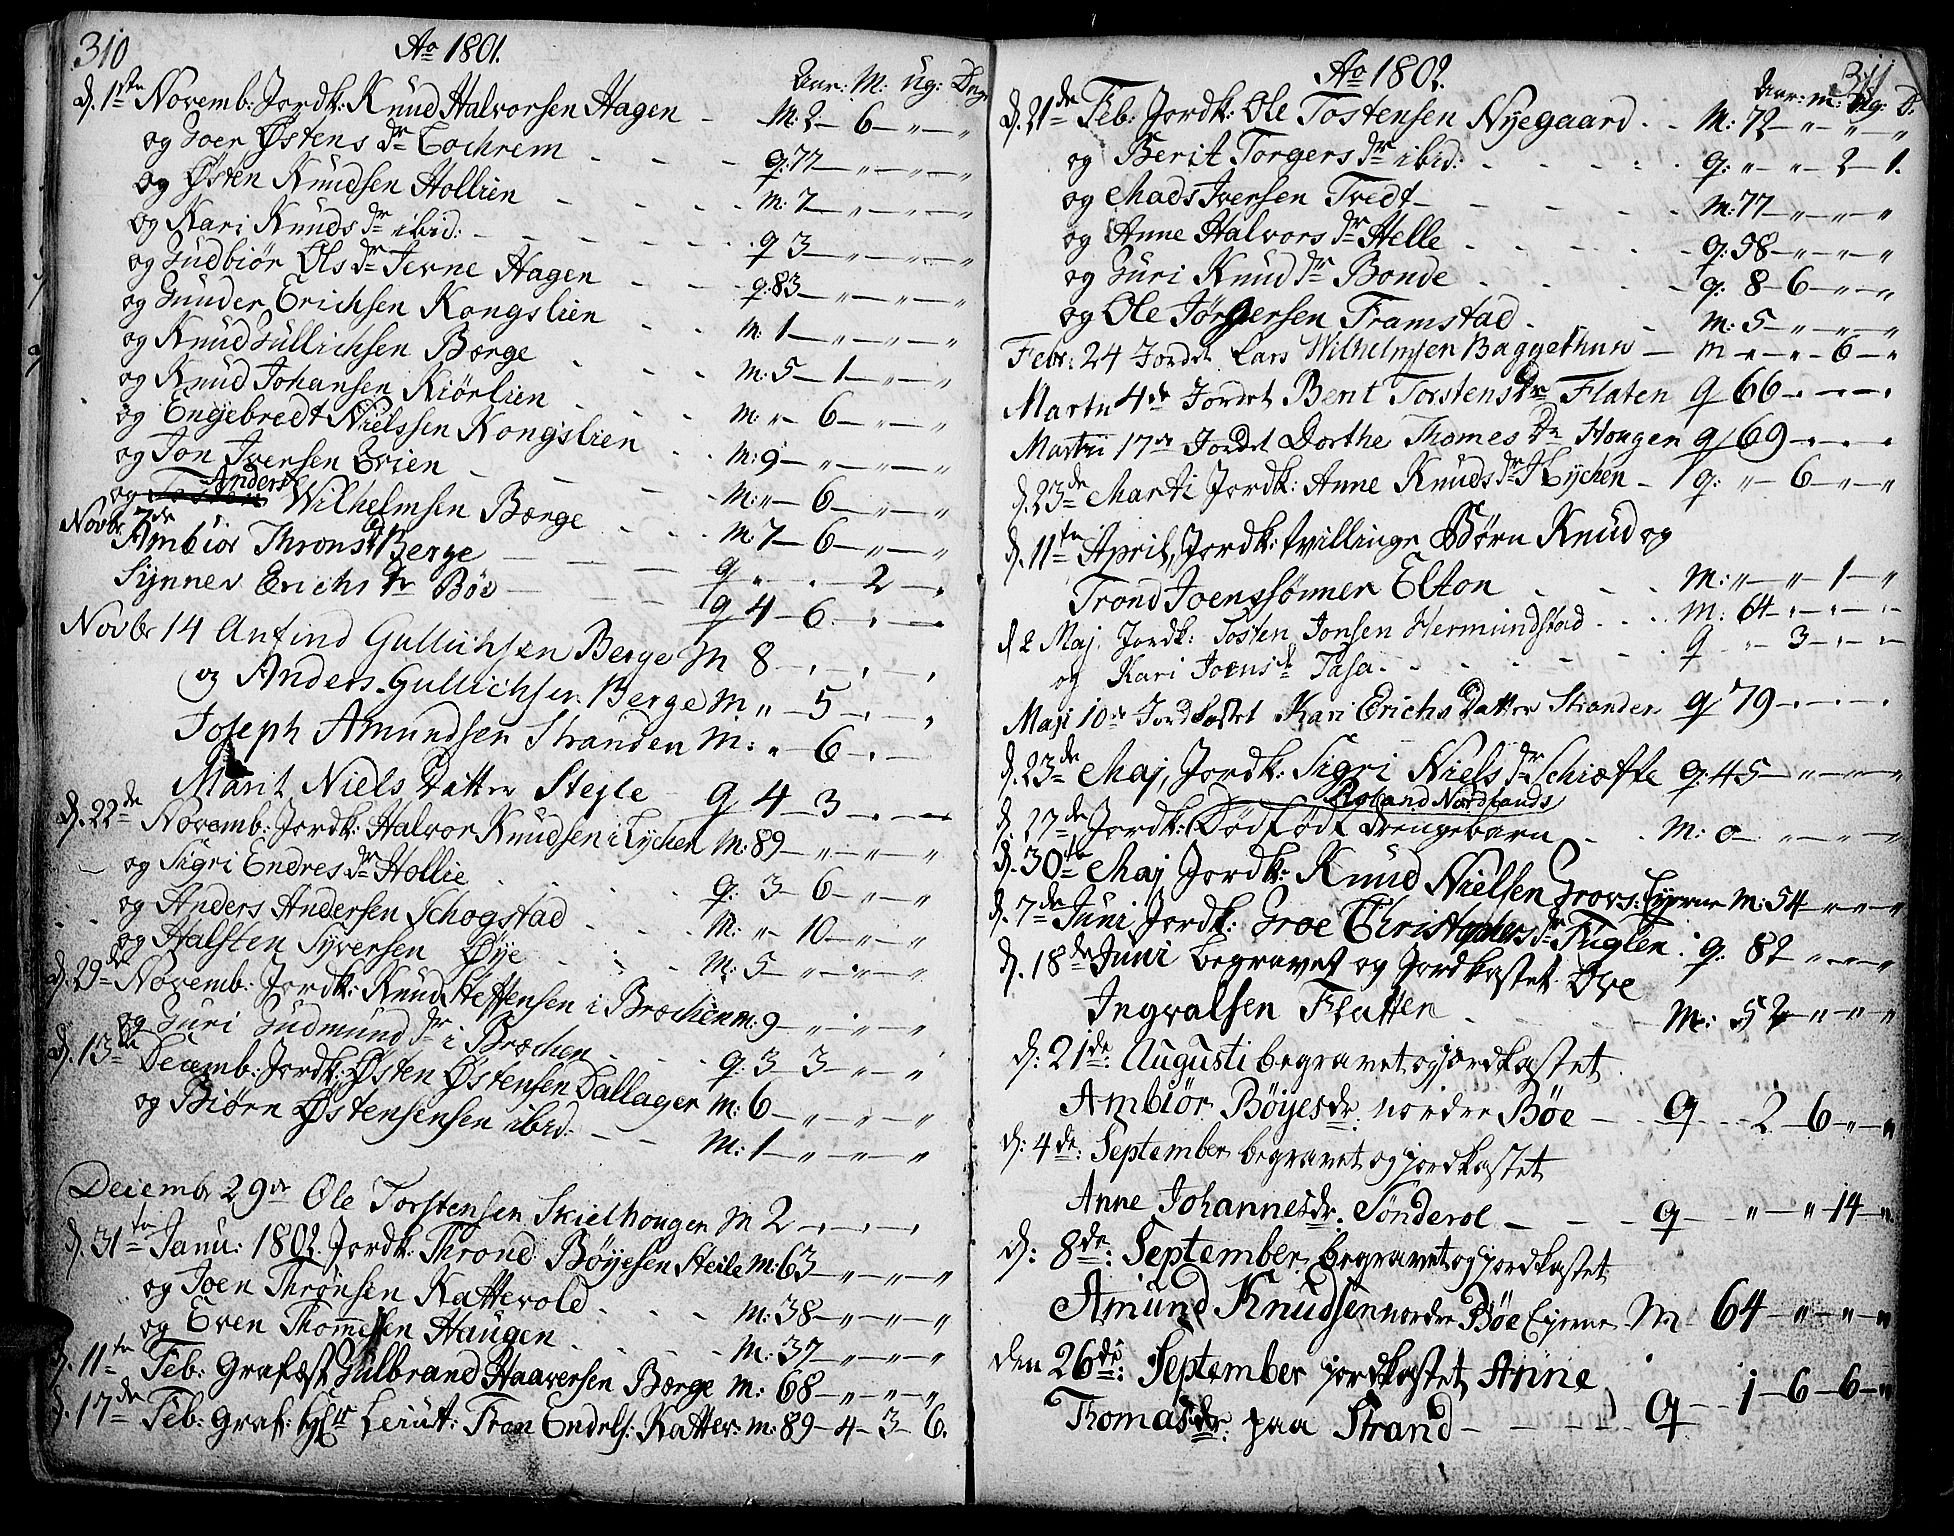 310
Ao 1801.
Aar: M: Ug: Dag.
d. 1ste Novemb: Jordk: Knud Halvorsen Hagen - M: 2 - 6 - " - "
og Goer Østens dr Lochrem - - - q: 77 - " - " - "
og Østen Knudsen Hollien - - - M: 7 - " - " - "
og Kari Knuds dr ibid: - - - q 3 - " - " - "
og Gudbiør Ols dr Jerne Hagen - - - q: 83 - " - " - "
og Gunder Erichsen Kongslien - - M: 1 - " - " - "
og Knud Gullichsen Børge - - - M: 5 - 1 - " - "
og Knud Johansen Kiørlien - - - M: " - 6 - " - "
og Engebredt Nielssen Kongslien - - M: 9 - " - " - "
og Jon Iversen Grien - - - M: " - 6 - " - "
og Anders Wilhelmsen Børge - - - M: 7 - 6 - " - "
Novbr 7de Ambiør Throns dr Berge - - - q " - . - 2 - .
Synnev Erichs dr Böe - - - q 4 - 6 . - . -
Novbr 14 Anfind Gullichsen Berge M 8 - . - . - .
og Anders Gullichsen Berge M " - 5 - . - .
Joseph Amundsen Stranden M: " - 6 - . -
Marit Niels Datter Steyle q 4 - 3 - . - .
d. 22de Novemb: Jordk: Halvor Knudsen i Lychen M: 89 - " - " - "
og Sigri Endres dr Hollie - - q: 3 - 6 - " - "
og Anders Andersen Schogstad - - - M: " - 10 - " - "
og Halsten Syversen Øye - - - M: 5 - " - " - "
d. 29de Novemb: Jordk: Knud Steffensen i Brochen M: 9 - " - " - "
og Guri Gudmund dr i Brochen - - - q: 3 - 3 - " - "
d. 13de Decemb: Jordk: Østen Østensen Dallager M: 6 - " - " - "
og Biørn Østensensen ibid: - - M: 1 - " - " - "
Decembr 29de Ole Torstensen Skielhougen M 2 - . - . - .
d. 31te Janu: 1802. Jordk: Thrond Böyesen Steile M: 63 - " - " - "
og Joen Thrönsen Kattevold - - - M: 38 - " - " - "
og Even Thommesen Haugen - - - M: 37 - " - " - "
d. 11te Feb: Grafæst Gulbrand Haaversen Børge M: 68 - " - " - "
d. 17de Feb: Graf: Hr Leiut: Tron Endels: Kattev: M: 89 - 4 - 3 - 6.
311
Ao 1802.
Aar: M: Ug: D.
d. 21de Feb: Jordk: Ole Tostensen Nyegaard - - M: 72 - " - " - "
og Berit Torgers dr ibid: - - - q: " - " - 2 - 1.
og Mads Iversen Tvedt - - - M: 77 - " - " - "
og Anne Halvors dr Helle - - - q: 58 - " - " - "
og Guri Knud dr Bonde - - - q: 8 - 6 - " - "
og Ole Jörgersen Framstad - - M: 5 - " - " - "
Febr: 24 Jordet Lars Wilhelmsen Baggethun - M " - " - 6 - "
Martii 4de Jordet Berit Torstens dr Flaten q 66 - . - . - .
Martii 17de Jordet Dorthe Thomes Dr Hougen q 69 - . - . - .
d. 23de Marti Jordk: Anne Knuds dr Lychen - q: " - 6 - " - "
d. 11te April, Jordk: tvillinge Børn Knud og
Trond Joenssönner Elton - - - M: " - " - 1 - "
d 2 Maj. Jordk: Tosten Jonsen Hermundstad - - - M: 64 - . - . - .
og Kari Joens dr Tasa - - - q " - 3 - . - .
Maji 10de Jordkastet Kari Erichs datter Stranden q 79 - . - . - .
d. 23de Maj, Jordk: Sigri Niels dr Schiøffe q: 45 - " - " - "
Roland Nordlands
d. 27de Jordk: Dödfödt Drengebarn - - M: 0 - " - " - "
d. 30te Maj Jordk: Knud Nielsen Grovs: Eyerne M: 54 - " - " - "
d. 7de Juni Jordk: Groe Christophers dr Fuglen: q: 82 - " - " - "
d. 18de Juni begravet og jordkastet Ove
Ingvalsen Flatten - - - M: 52 - " - " - "
d: 21de Augusti begravet og jordkastet
Ambiör Böyesdr. nordre Böe - - q - - 2 - 6 - " - "
d: 4de September begravet og jordkastet
Anne Johannesdr. Sönderol - - - q - - " - " - 14 - "
d: 8de: September begravet og jordkastet
Amund Knudsen nordre Böe Eyerne M 64 - " - " - "
den 26de: September jordkastet Anne
Thomasdr: paa Strand - - - q - - 1 - 6 - 6 - "